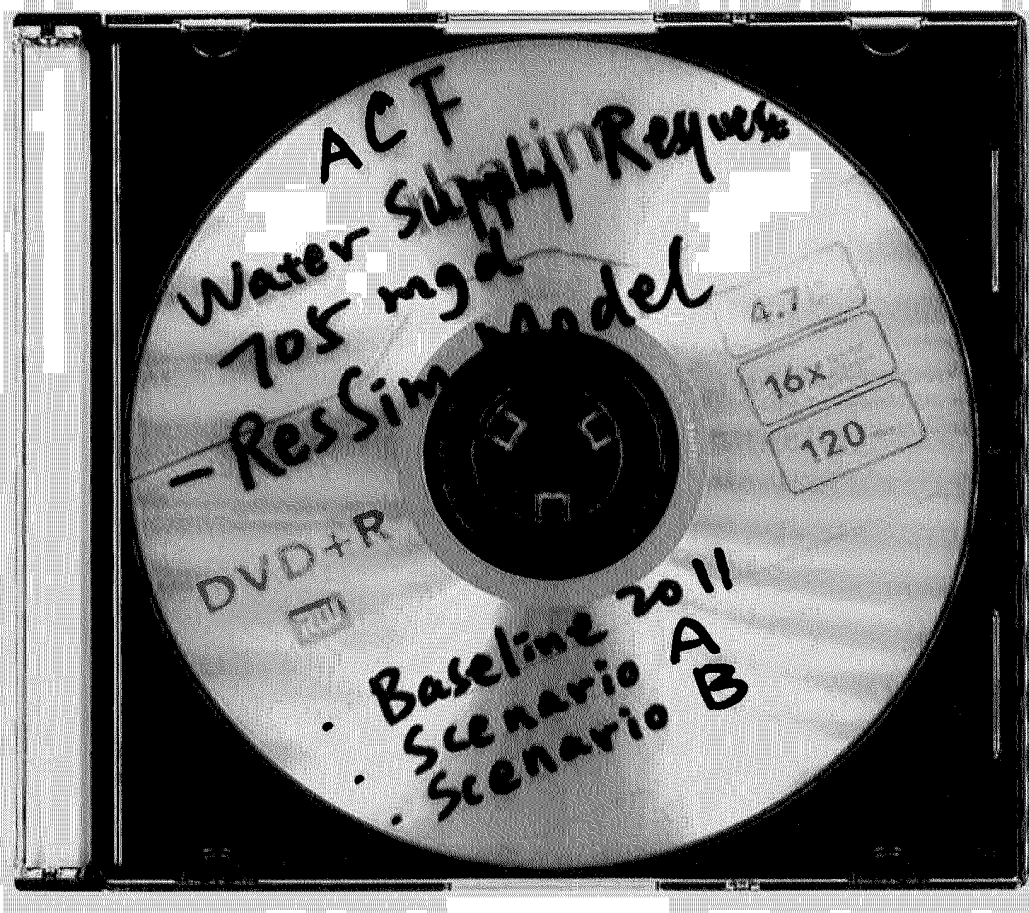 ACF
Water Supply Request
705 mgd
- ResSim Model
4.7
16x
120
DVD+R
• Baseline 2011
• Scenario A
• Scenario B